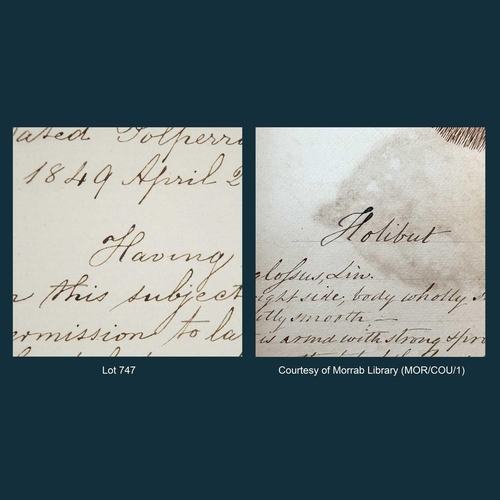 ated Polperro
1849 April 2
Having
this subject
ermission to la
Lot 747
Holibut
glossus, Lin.
ight side, body wholly s
tly smooth —
is armd with strong
Courtesy of Morrab Library (MOR/COU/1)